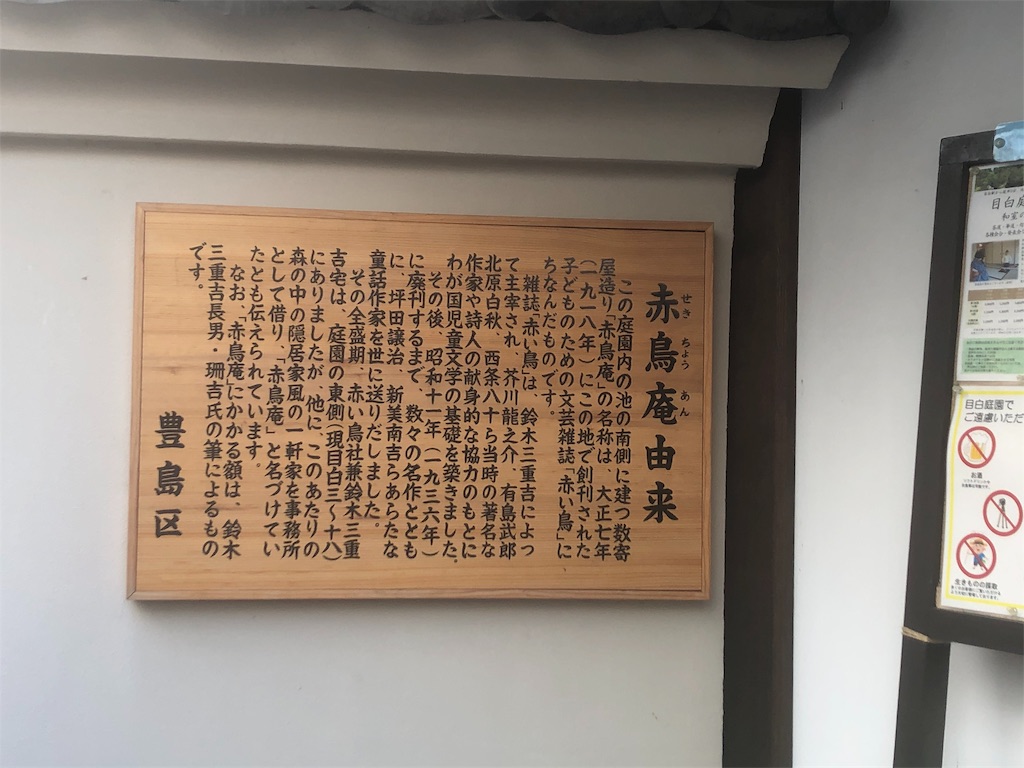 赤鳥庵由来
せき ちょう あん
この庭園内の池の南側に建つ数寄
屋造り「赤鳥庵」の名称は、大正七年
(一九一八年)にこの地で創刊された
子どものための文芸雑誌「赤い鳥」に
ちなんだものです。
雑誌「赤い鳥」は、鈴木三重吉によっ
て主宰され、芥川龍之介、有島武郎
北原白秋、西条八十ら当時の著名な
作家や詩人の献身的な協力のもとに
わが国児童文学の基礎を築きました。
その後、昭和十一年(一九三六年)
に廃刊するまで、数々の名作ととも
に、坪田譲治、新美南吉らあらたな
童話作家を世に送りだしました。
その全盛期、赤い鳥社兼鈴木三重
吉宅は、庭園の東側(現目白三〜十八)
にありましたが、他に、このあたりの
森の中の隠居家風の一軒家を事務所
として借り、「赤鳥庵」と名づけてい
たとも伝えられています。
なお、「赤鳥庵」にかかる額は、鈴木
三重吉長男・珊吉氏の筆によるもの
です。
豊島区
目白庭
和室
目白庭園で
ご遠慮いただ
お酒
生きものの採取